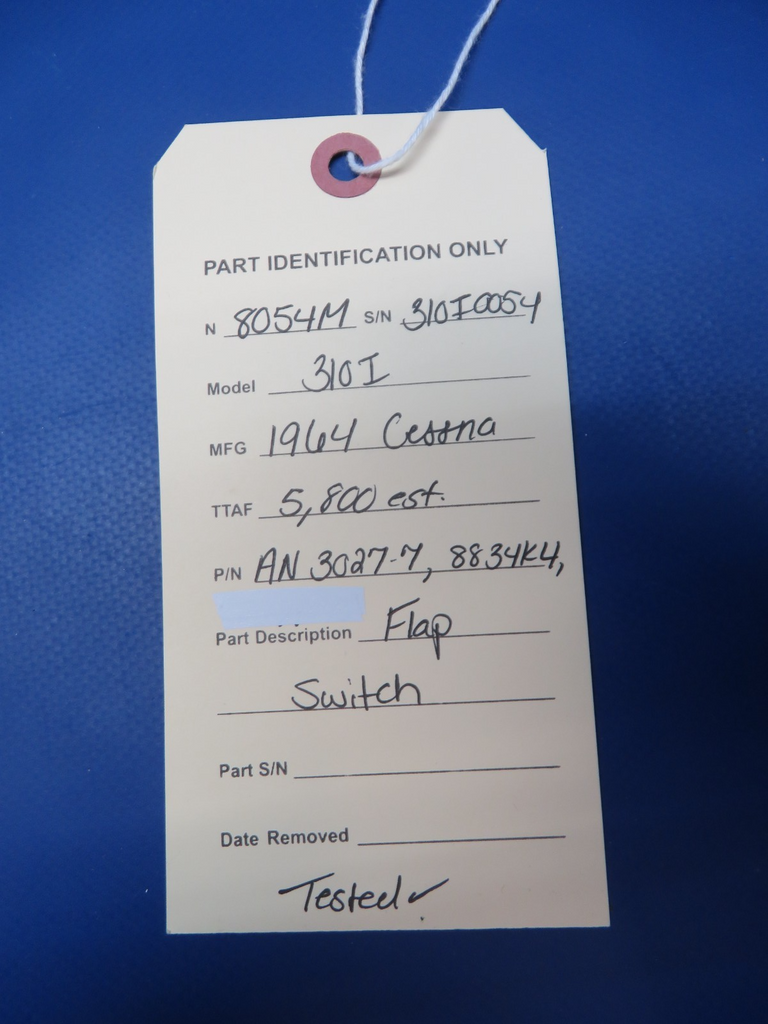 PART IDENTIFICATION ONLY
N 8054M S/N 310I0054
Model 310I
MFG 1964 Cessna
TTAF 5,800 est.
P/N AN 3027-7, 8834K4,
Part Description Flap
Switch
Part S/N
Date Removed
Tested ✓